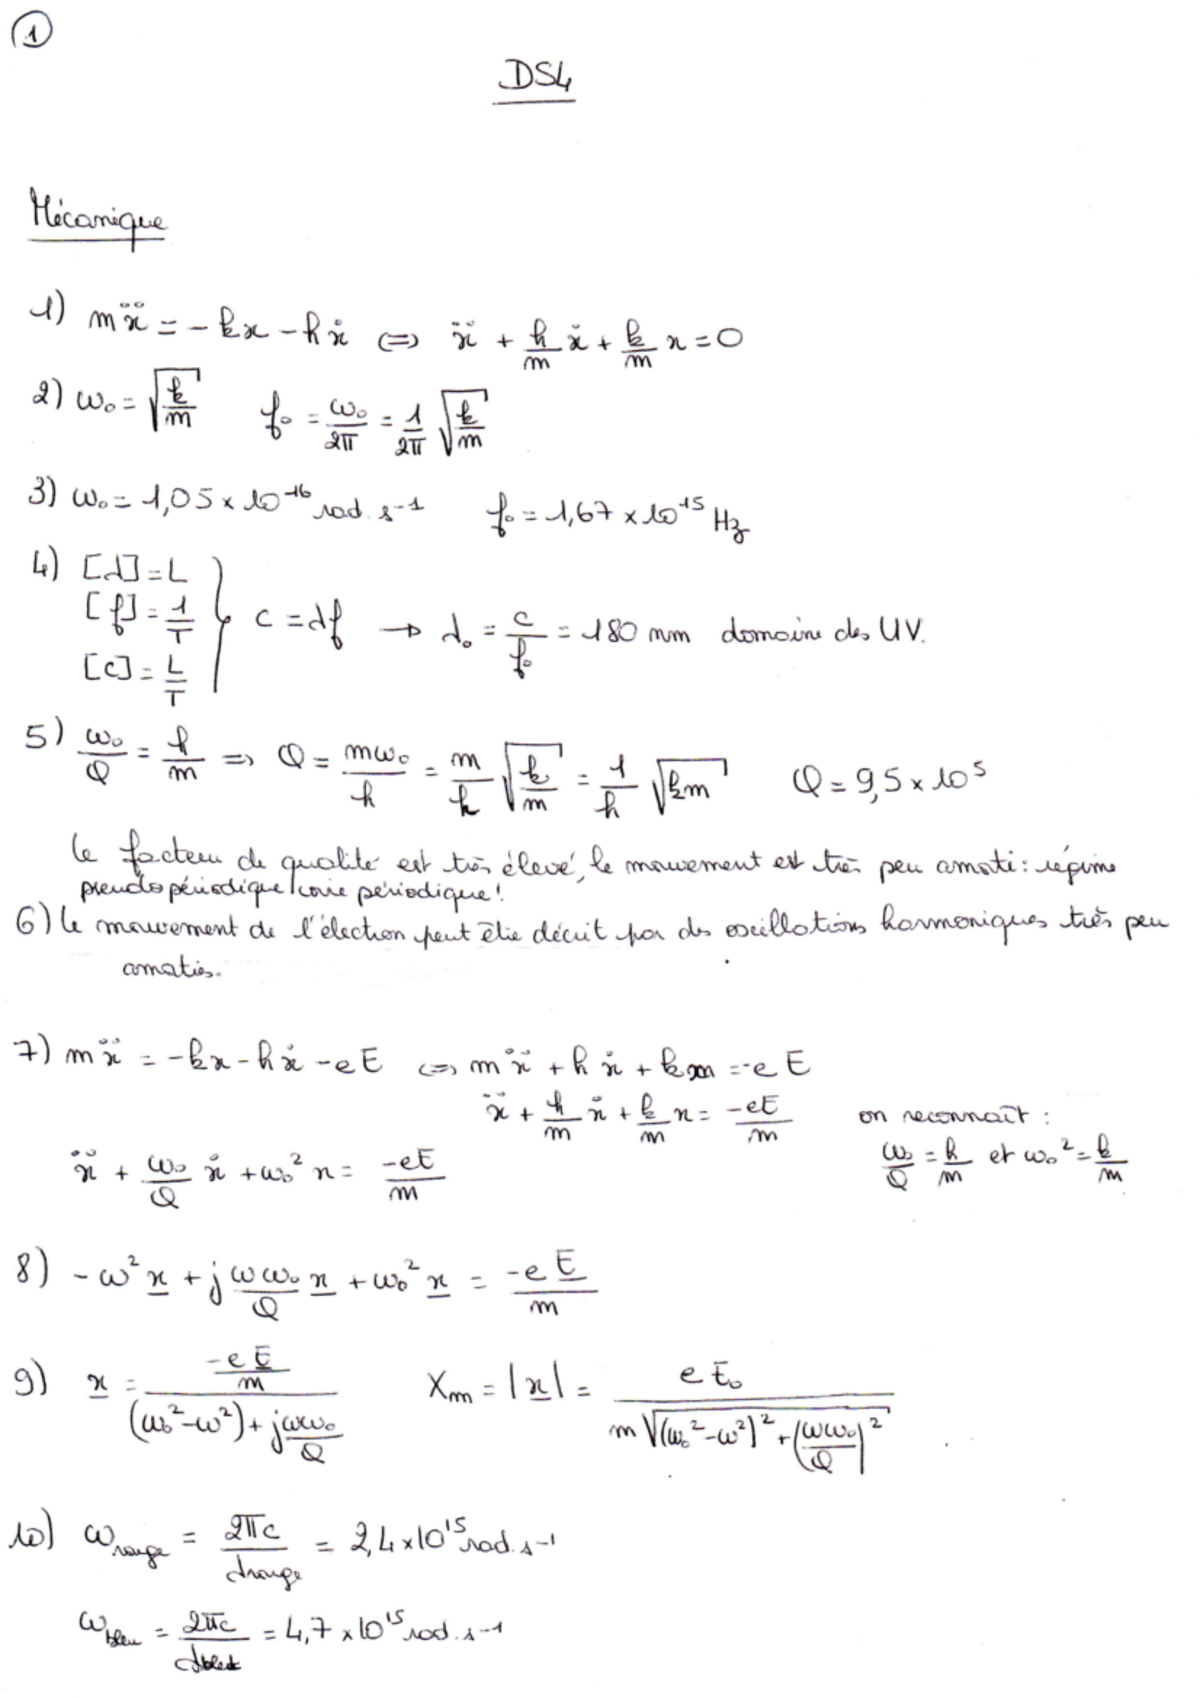 ①
DS4
Mécanique
1) mẍ = - kx - hẋ ⇔ ẍ + h/m ẋ + k/m x = 0
2) ω₀ = √(k/m) f₀ = ω₀/2π = 1/2π √(k/m)
3) ω₀ = 1,05 × 10¹⁶ rad.s⁻¹ f₀ = 1,67 × 10¹⁵ Hz
4) [λ] = L
[f] = 1/T } c = λf → λ₀ = c/f₀ = 180 nm domaine des UV.
[c] = L/T
5) ω₀/Q = h/m ⇒ Q = mω₀/h = m/h √(k/m) = 1/h √(km) Q = 9,5 × 10⁵
le facteur de qualité est très élevé, le mouvement est très peu amorti : régime
pseudo périodique voire périodique !
6) le mouvement de l'électron peut être décrit par des oscillations harmoniques très peu
amorties.
7) mẍ = - kx - hẋ - eE ⇔ mẍ + hẋ + kx = - eE
ẍ + h/m ẋ + k/m x = -eE/m on reconnaît :
ẍ + ω₀/Q ẋ + ω₀² x = -eE/m ω₀/Q = h/m et ω₀² = k/m
8) - ω² x + j ωω₀/Q x + ω₀² x = -eE/m
9) x = (-eE/m)/((ω₀² - ω²) + j ωω₀/Q) Xm = |x| = eE₀/(m √((ω₀² - ω²)² + (ωω₀/Q)²))
10) ω rouge = 2πc/λrouge = 2,4 × 10¹⁵ rad.s⁻¹
ω bleu = 2πc/λbleu = 4,7 × 10¹⁵ rad.s⁻¹